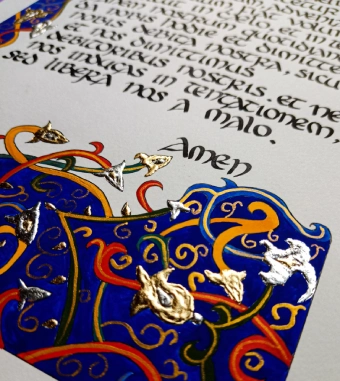 quotidian
hodie et dimitte
nobis debita nostra, sicu
et nos dimittimus
debitoribus nostris. et ne
nos inducas in tentationem,
sed libera nos a malo.
Amen